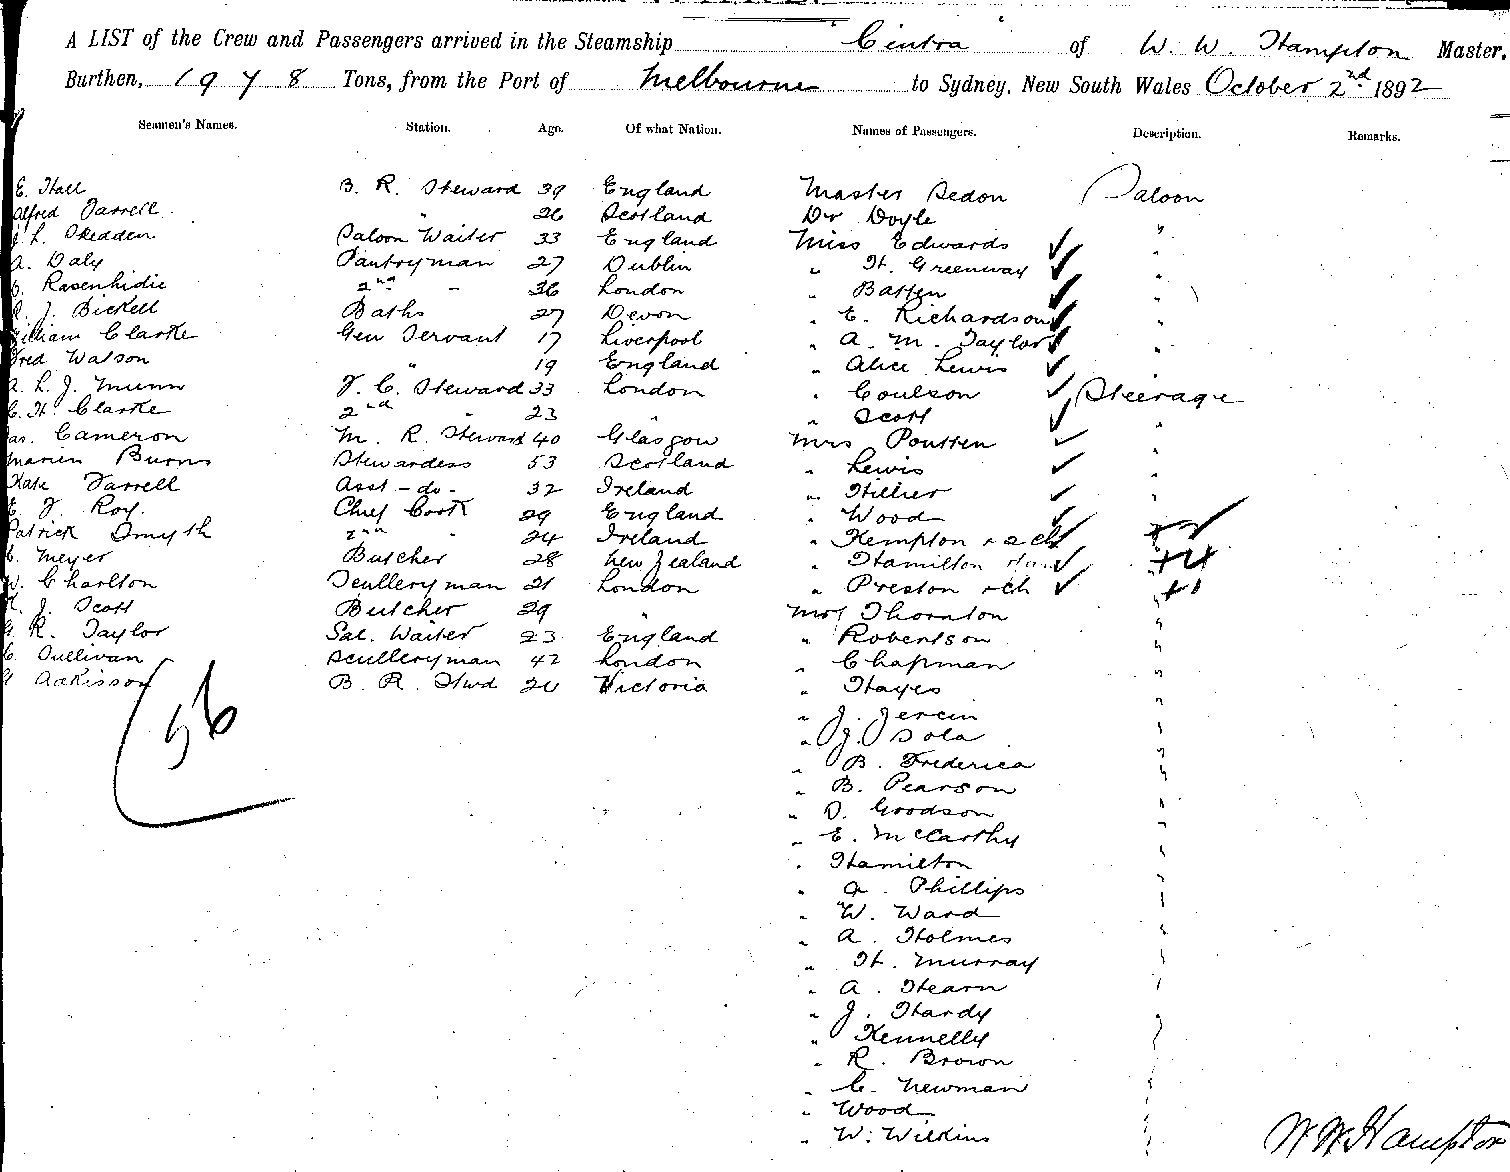 A LIST of the Crew and Passengers arrived in the Steamship Cintra of W. W. Hampton Master,
Burthen, 1978 Tons, from the Port of Melbourne to Sydney, New South Wales October 2nd 1892
Seamen's Names. Station. Age. Of what Nation. Names of Passengers. Description. Remarks.
E. Hall B. R. Steward 39 England Master Sedon Saloon
Alfred Farrell " 26 Scotland Dr Doyle "
L. Skedden Saloon Waiter 33 England Miss Edwards "
A. Daly Pantryman 27 Dublin " H. Greenway "
Rasenhidie 2nd " 36 London " Batten "
J. Bickell Baths 27 Devon " E. Richardson "
William Clarke Gen Servant 17 Liverpool " A. M. Taylor "
Fred Watson " 19 England " Alice Lewis "
A. L. J. Munn F. C. Steward 33 London " Coulson Steerage
C. H. Clarke 2nd " 23 " " Scott "
Jas. Cameron M. R. Steward 40 Glasgow Mrs Poutten "
Marien Burns Stewardess 53 Scotland " Lewis "
Kate Farrell Asst - do - 32 Ireland " Hillier "
E. F. Roy. Chief Cook 29 England " Wood "
Patrick Smyth 2nd " 24 Ireland " Kempton + 2 ch
Meyer Butcher 28 New Zealand " Hamilton
W. Charlton Sculleryman 21 London " Preston + ch
J. Scott Butcher 29 " Mr Thornton "
R. Taylor Sal. Waiter 23 England " Robertson "
Sullivan Sculleryman 42 London " Chapman "
Adkisson B. R. Stwd 20 Victoria " Hayes "
56
" J. Jercin "
" J. Sola "
" B. Frederica "
" B. Pearson "
" D. Goodson "
" E. McCarthy "
" Hamilton "
" A. Phillips "
" W. Ward "
" A. Holmes "
" H. Murray "
" A. Hearn "
" J. Hardy "
" Kennelly "
" R. Brown "
" C. Newman "
" Wood "
" W. Wilkins "
W W Hampton